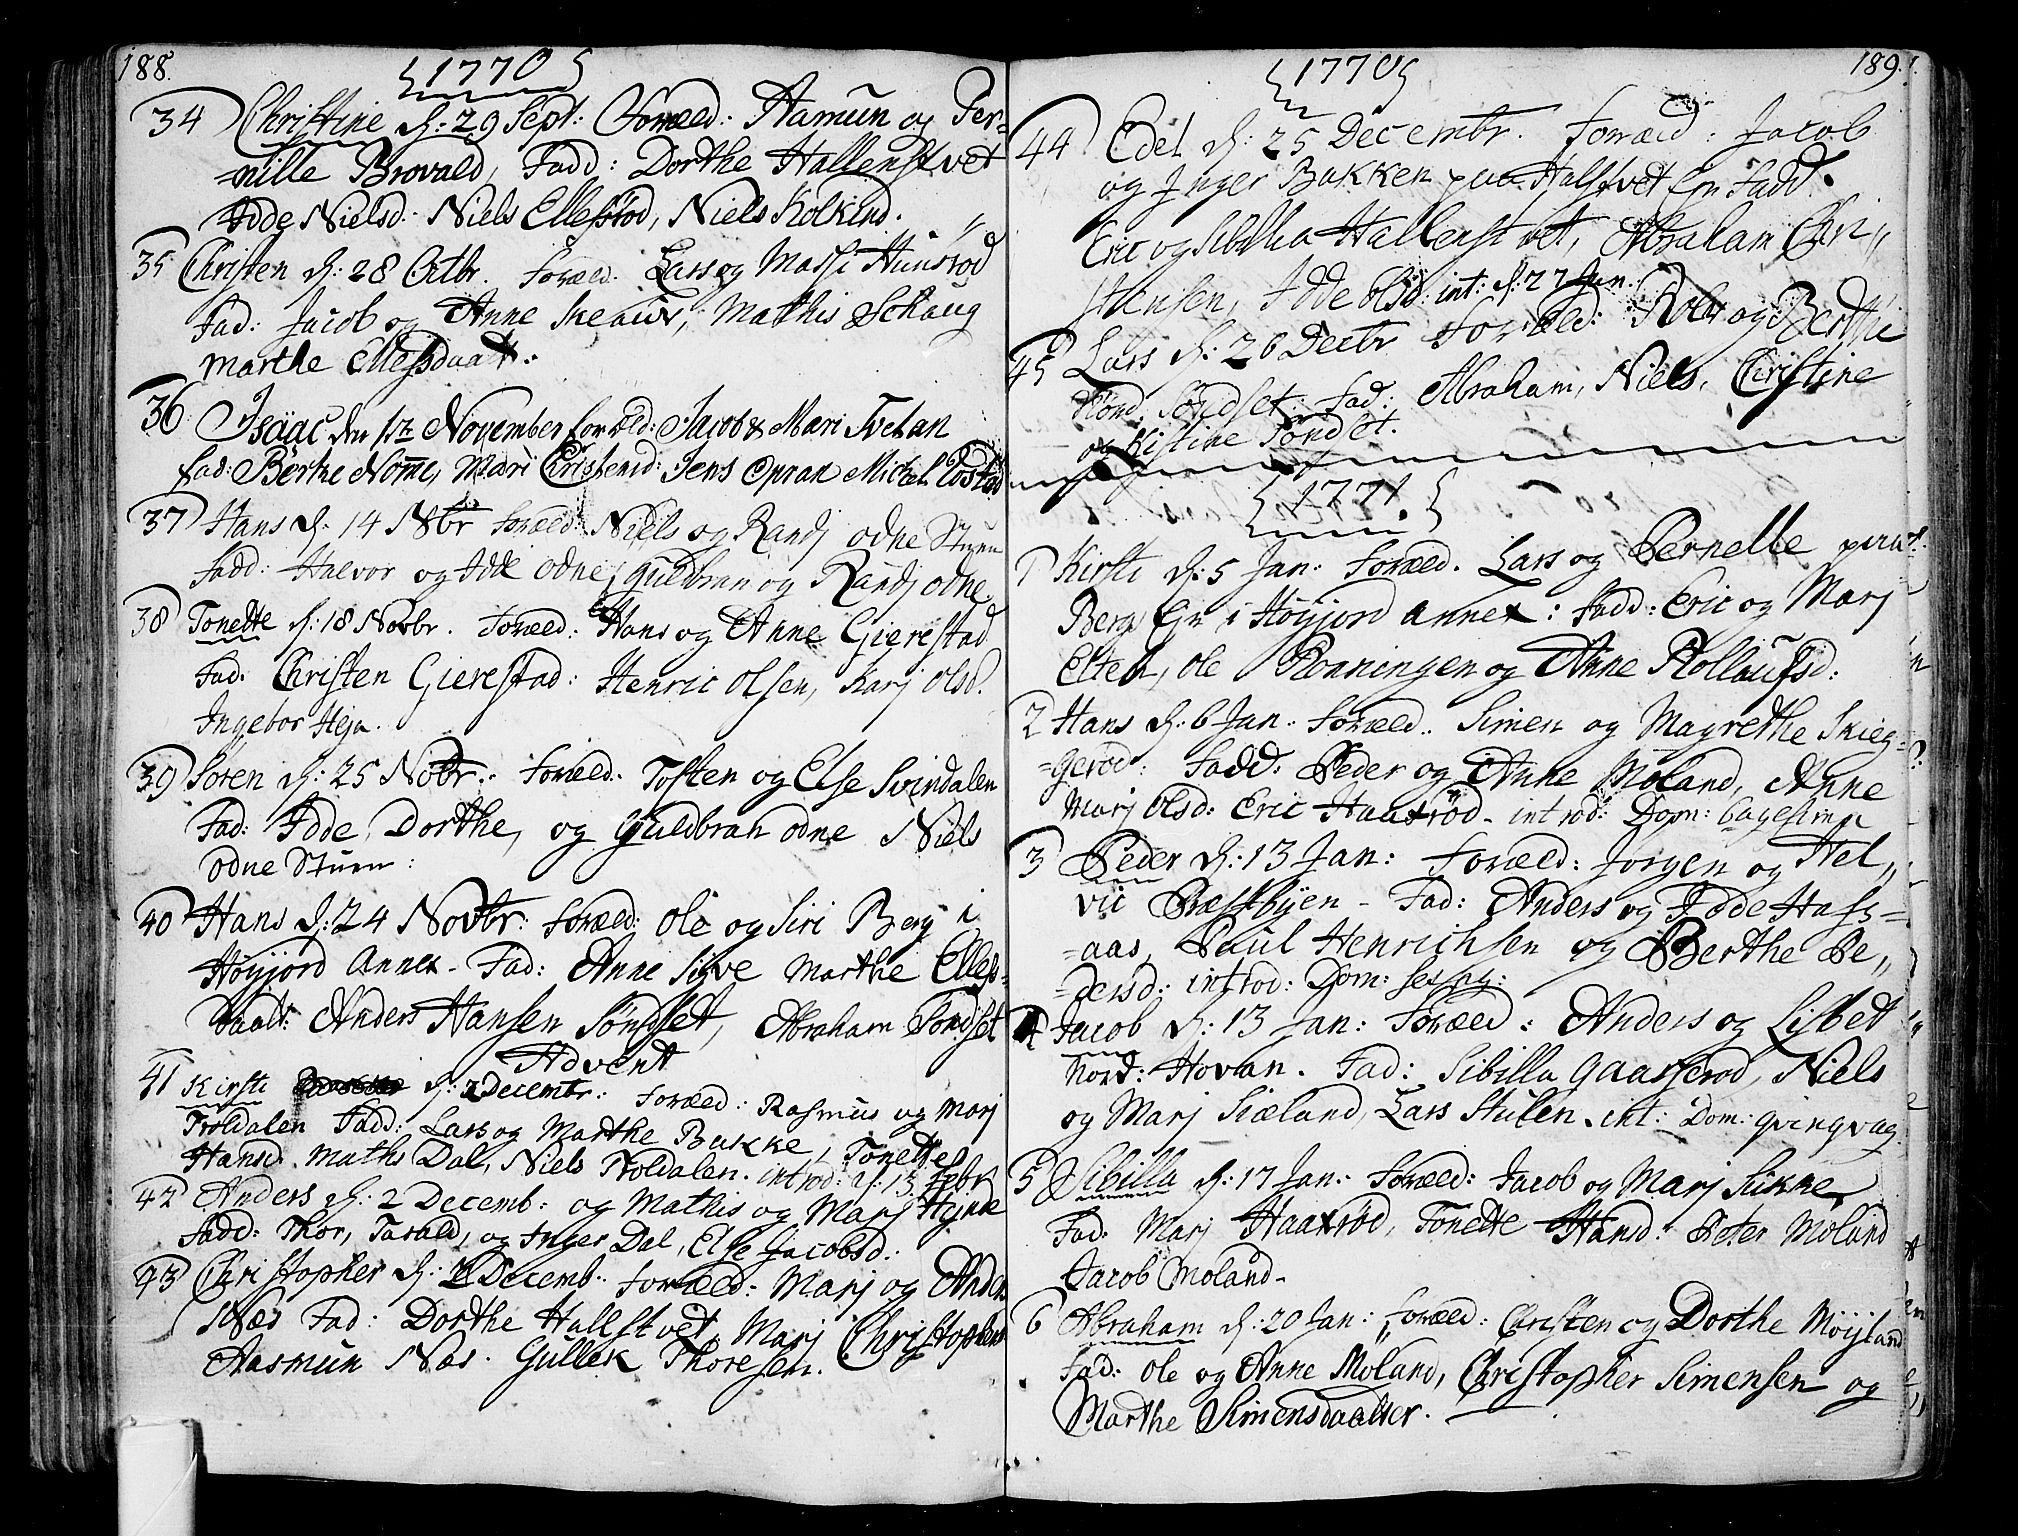 188.
1770
34 Christine d: 29 Sept: Foræld: Aamun og Per-
=nille Brovald, Fadd: Dorthe Hallenstvet
Idde Nielsd. Niels Ellefsrød, Niels Kolkind.
35 Christen d: 28 Octbr. Foræld. Lars og Massi Hunsrød
Fad: Jacob og Anne Skeaur, Mathis Schaug
Marthe Ellefsdaat:
36 Isaac den 11te November foræld: Jacob & Mari Tvetan
fad: Berthe Nome, Mari Christensd: Jens Opran Michel
37 Hans d. 14 Nbr foræld: Niels og Randj Odne Stuen
Fadd: Halvor og Idde Odne, Guldbran og Randj Odne
38 Tonette d: 18 Novbr. Foræld: Hans og Anne Gierestad
Fad. Christen Gierestad: Henric Olsen, Karj Olsd.
Ingebor Heja.
39 Søren d: 25 Novbr. Foræld. Tosten og Else Svindalen
Fad: Idde, Dorthe, og Guldbran Odne Niels
Odne Stuen:
40 Hans d: 24 Novbr: foræld: Ole og Siri Berg i
Høyjord Annex - Fad: Anne Sive Marthe Ellefs-
daat: Anders Hansen Søndset, Abraham Søndset
Advent
41 Kirsti d: 2 Decembr: Foræld: Rasmus og Marj
Troldalen Fadd: Lars og Marthe Bakke, Tonette
Hansd. Maths Dal, Niels Troldalen. introd: d: 13 Febr
42 Anders d: 2 Decemb: og Mathis og Marj
Fadd: Thor, Tarald, og Inger Dal, Else Jacobsd:
43 Christopher d: Decemb. Foræld: Marj og Anders
Næs Fad: Dorthe Hallstvet, Marj Christophers
Aasmun Næs. Gullek Thoresen.
189.
1770
44 Edel d: 25 Decembr. Foræld: Jacob
og Inger Bakken paa Halstvet Ejer Fadd.
Eric og Sibilla Hallenstvet, Abraham Chri,,
stensen, Idde Olsd: int: d: 27 Jan.
45 Lars d: 26 Decbr Foræld: og Berthe
Søndset: Fad: Abraham, Niels, Christine
og Kistine Søndset.
1771.
1 Kirsti d: 5 Jan: Foræld. Lars og Pernelle paa
Berg Ejer i Høyjord annex: Fadd: Eric og Marj
Ole Rønningen og Anne Rollaufsd:
2 Hans d: 6 Jan: Foræld: Simen og Magrethe Skieg-
=gerød: Fadd: Peder og Anne Moland, Anne
Marj Olsd: Eric Haaxrød - introd: Dom:
3 Peder d: 13 Jan: Foræld: Jørgen og Hel,,
vic Præstbyen - Fad: Anders og Idde Hafs=
=aas, Paul Henrichsen og Berthe Pe,,
=dersd: introd: Dom: sexag:
4 Jacob d: 13 Jan: Foræld: Anders og Lisbet
Nord: Hovan. Fad: Sibilla Gaasserød, Niels
og Marj Siæland, Lars Stulen. int: Dom: qvinqvag
5 Sibilla d: 17 Jan: Foræld: Jacob og Marj
Fad: Marj Haaxrød, Tonette Hansd: Peter Moland
Jacob Moland-
6 Abraham d: 20 Jan: Foræld: Christen og Dorthe Møyland
Fad: Ole og Anne Moland, Christopher Simensen og
Marthe Simensdaatter.